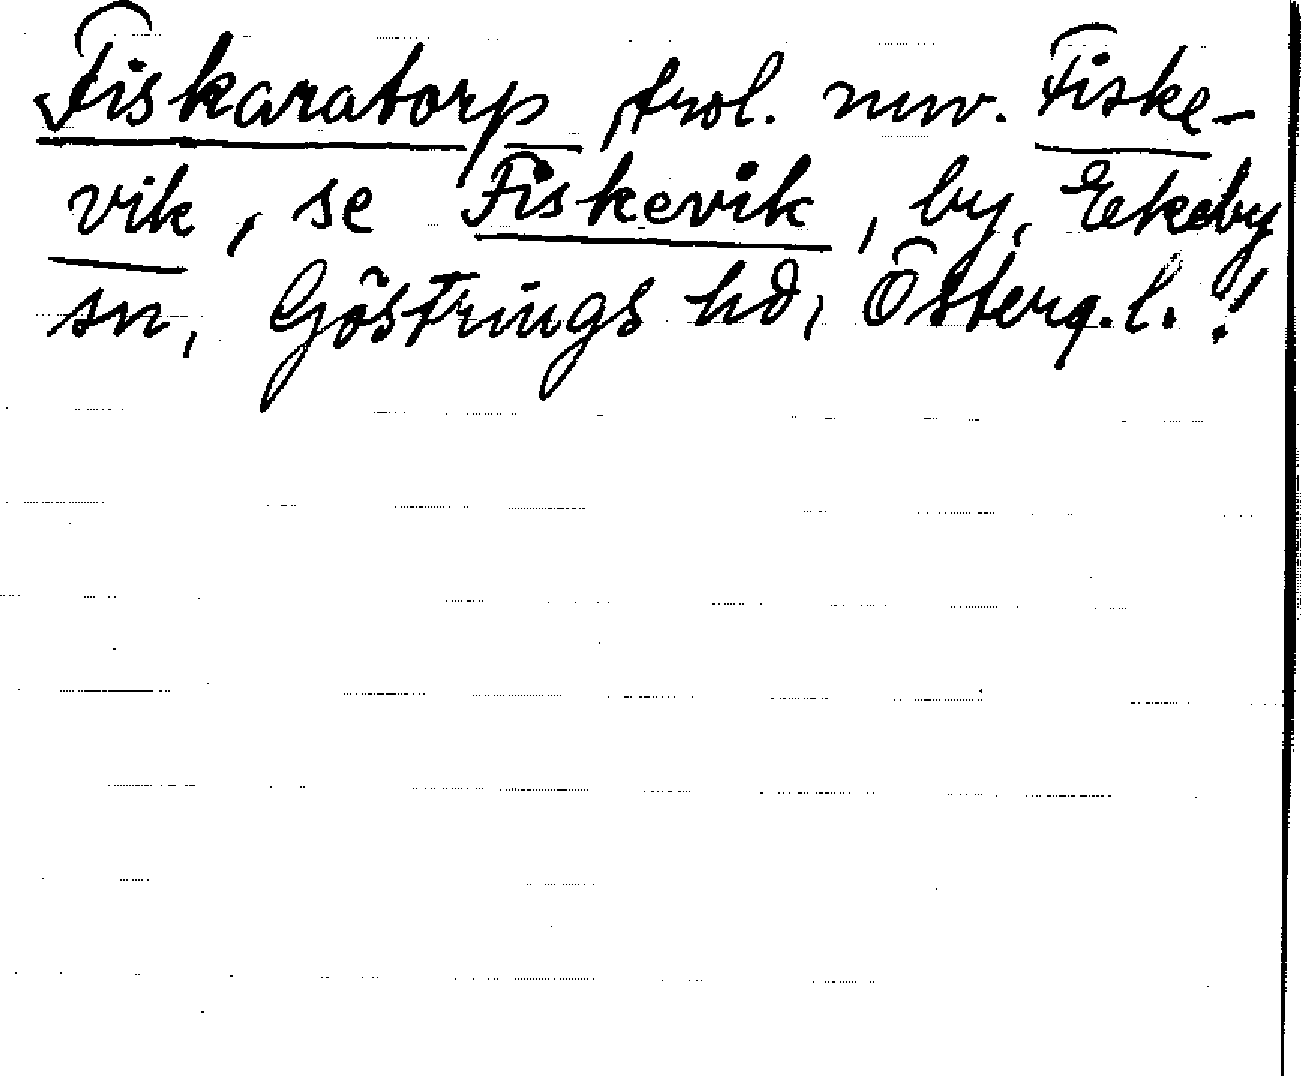 Fiskaratorp, trol. nuv. Fiske-
vik, se Fiskevik, by, Ekeby
sn, Göstrings hd, Österg.l.!